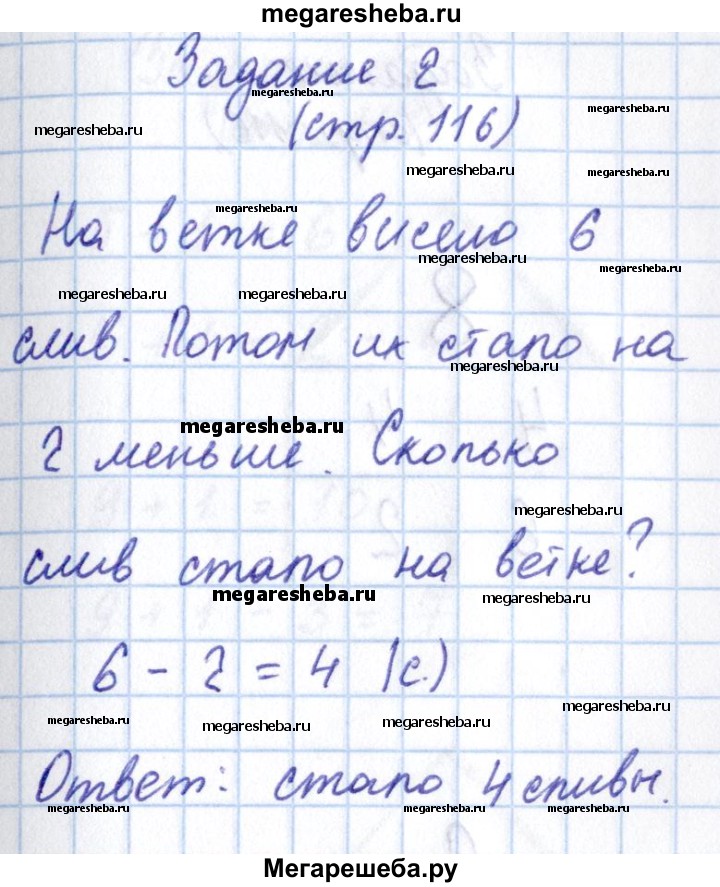 megaresheba.ru
Задание 2
megaresheba.ru
megaresheba.ru
megaresheba.ru
(стр. 116)
megaresheba.ru
megaresheba.ru
megaresheba.ru
На ветке висело 6
megaresheba.ru
megaresheba.ru
megaresheba.ru
megaresheba.ru
слив. Потом их стало на
megaresheba.ru
megaresheba.ru
2 меньше. Сколько
megaresheba.ru
слив стало на ветке?
megaresheba.ru
megaresheba.ru
6 - 2 = 4 (с.)
megaresheba.ru
megaresheba.ru
megaresheba.ru
megaresheba.ru
Ответ: стало 4 сливы.
megaresheba.ru
megaresheba.ru
megaresheba.ru
Мегарешеба.ру